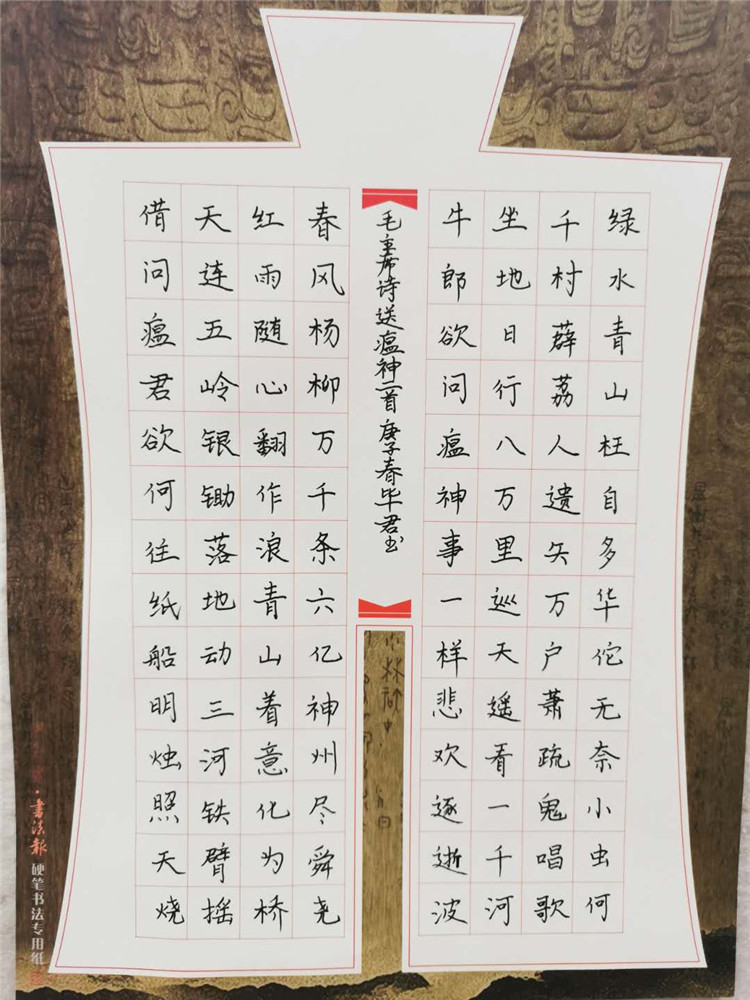 绿水青山枉自多华佗无奈小虫何
千村薜荔人遗矢万户萧疏鬼唱歌
坐地日行八万里巡天遥看一千河
牛郎欲问瘟神事一样悲欢逐逝波
毛主席诗送瘟神二首 庚子春毕君书
春风杨柳万千条六亿神州尽舜尧
红雨随心翻作浪青山着意化为桥
天连五岭银锄落地动三河铁臂摇
借问瘟君欲何往纸船明烛照天烧
·書法報 硬笔书法专用纸